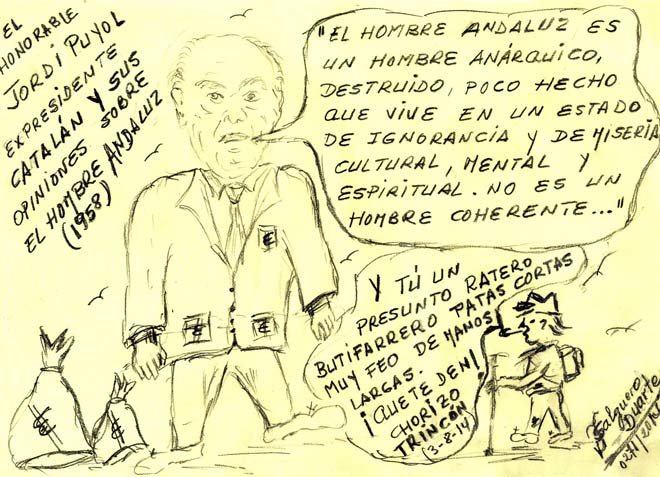 EL
HONORABLE
JORDI PUYOL
EXPRESIDENTE
CATALÁN Y SUS
OPINIONES SOBRE
EL HOMBRE ANDALUZ
(1958)
"EL HOMBRE ANDALUZ ES
UN HOMBRE ANÁRQUICO,
DESTRUIDO, POCO HECHO
QUE VIVE EN UN ESTADO
DE IGNORANCIA Y DE MISERIA
CULTURAL, MENTAL Y
ESPIRITUAL. NO ES UN
HOMBRE COHERENTE..."
Y TÚ UN
PRESUNTO RATERO
BUTIFARRERO PATAS CORTAS
MUY FEO DE MANOS
LARGAS.
¡QUE TE DEN!
CHORIZO
TRINCÓN
(3-8-14)
€
€
€
€
€
Salguero
Duarte